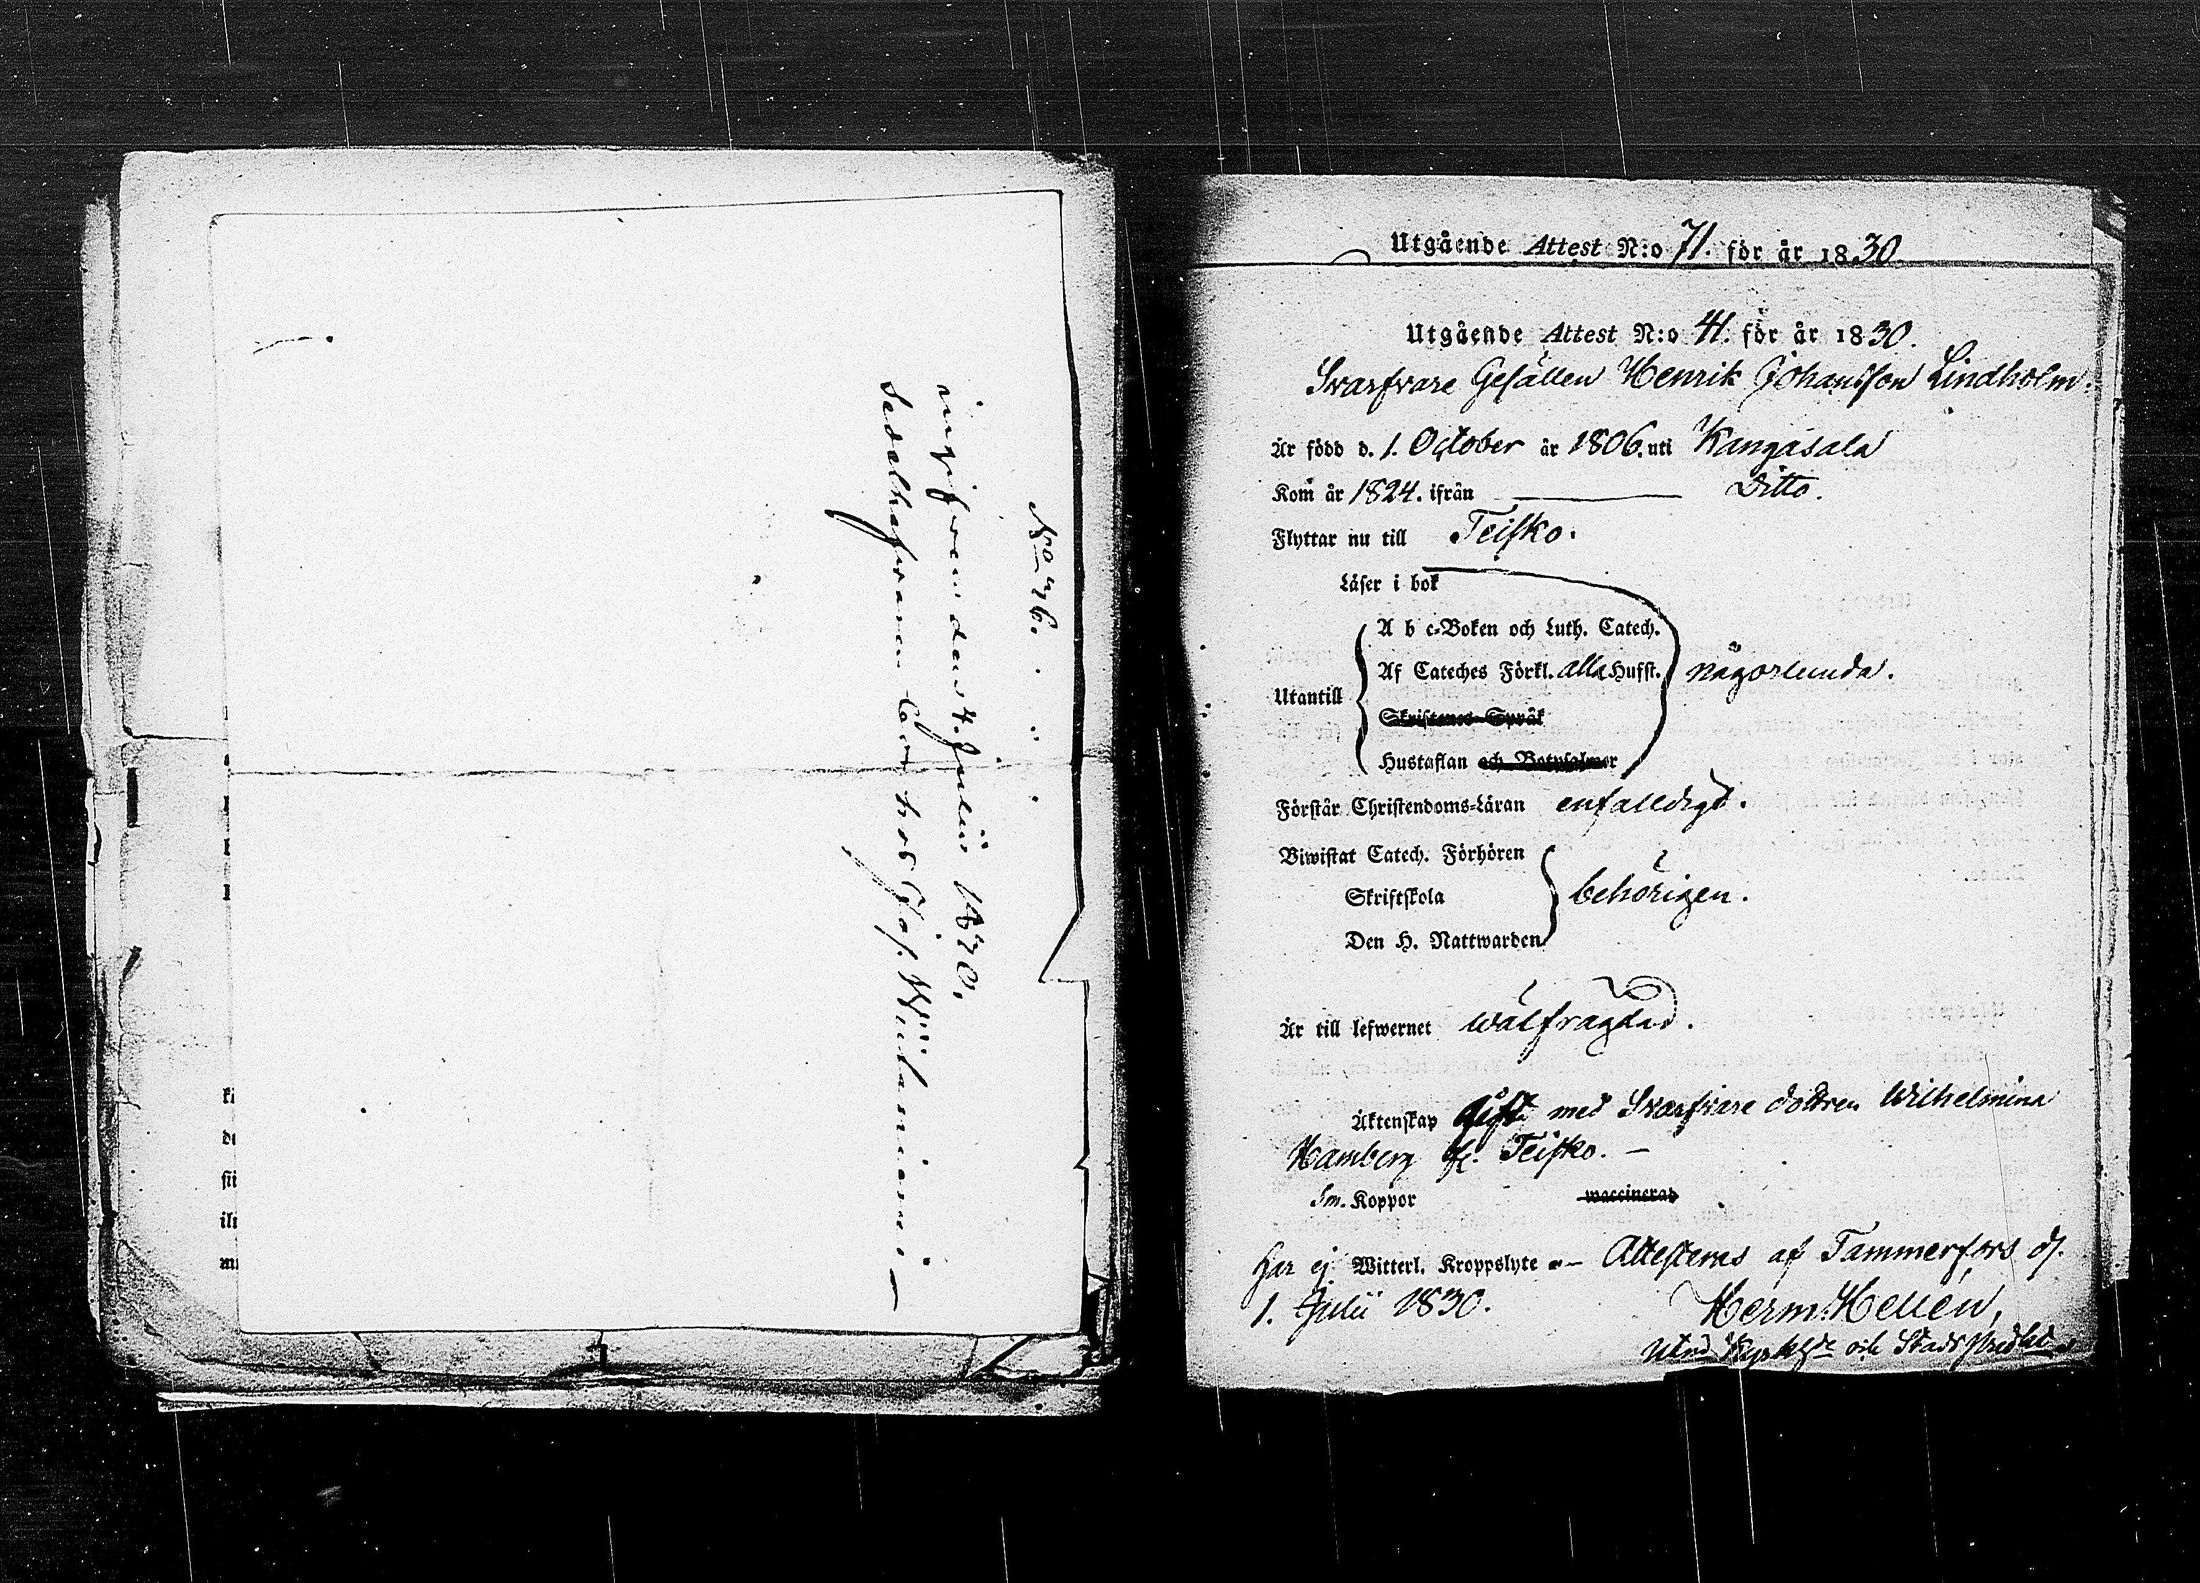 N:o 76.
ingifven den 4. Julii 1830.
Sedelhafvaren bor hos
Utgående Attest N:o 71. för år 1830
Utgående Attest N:o 41. för år 1830.
Svarfvare Gesällen Henrik Johansson Lindholm.
Är född d. 1. October år 1806. uti Kangasala
Kom år 1824. ifrån Ditto.
Flyttar nu till Teisko.
Läser i bok
A b c-Boken och Luth. Catech.
Af Cateches Förkl. alla Hufst. någorlunda.
Utantill
Skriftenes-Språk
Hustaflan och Botpsalmer
Förstår Christendoms-Läran enfaldigt.
Biwistat Catech. Förhören
Skriftskola behörigen.
Den H. Nattwarden
Är till lefwernet wälfrägdad.
Äktenskap gift med Svarfvare dottren Wilhelmina
Hamberg fr. Teisko. —
Sm. Koppor waccinerad
har ej Witterl. Kroppslyte — Attesteras af Tammerfors d.
1. Julii 1830. Herm: Hellén,
och